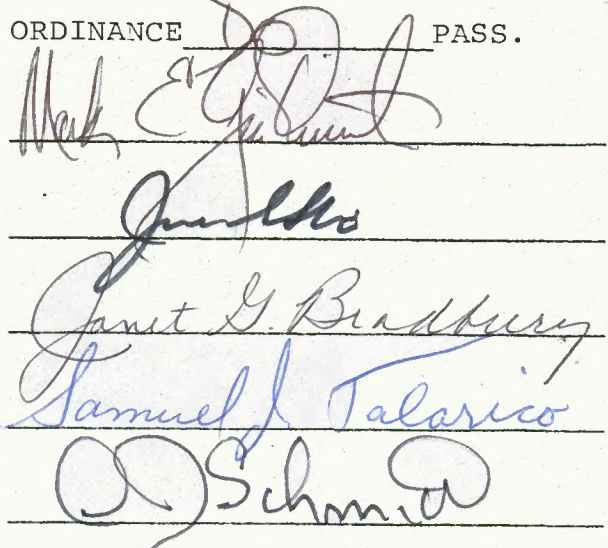 ORDINANCE PASS.
Mark E. GiaQuinta

Janet G. Bradbury
Samuel J Talarico
D Schmidt